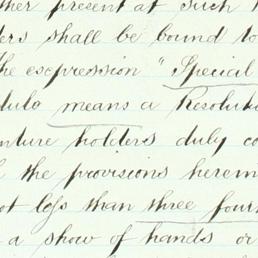 ther present at such
ers shall be bound to
he expression "Special
dule means a Resolut
nture holders duly co
the provisions herein
ot less than three four
a show of hands or